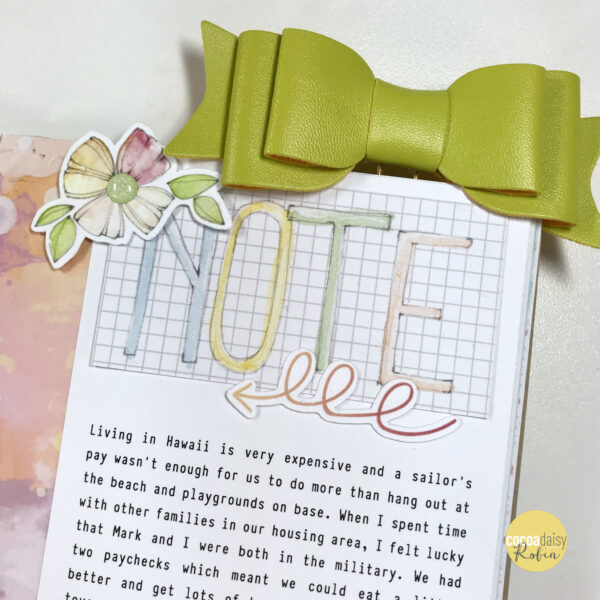 NOTE
Living in Hawaii is very expensive and a sailor's
pay wasn't enough for us to do more than hang out at
the beach and playgrounds on base. When I spent time
with other families in our housing area, I felt lucky
that Mark and I were both in the military. We had
two paychecks which meant we could eat a
better and get lots of
cocoadaisy
Robin